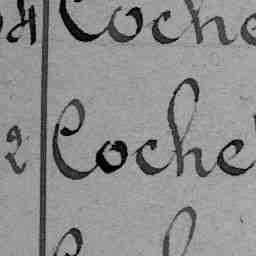 Coche
2 Coche